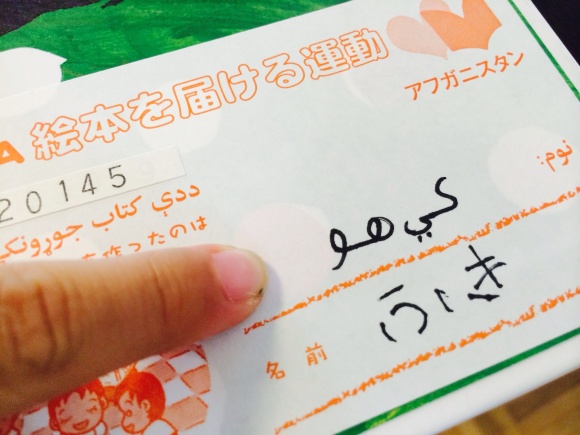 A 絵本を届ける運動
アフガニスタン
20145
ددې کتاب جوړونکي
作ったのは
نوم:
کي هو
名前